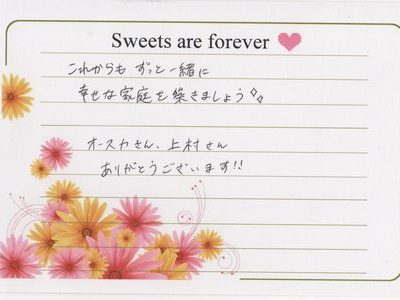 Sweets are forever
これからも ずっと一緒に
幸せな家庭を築きましょう
オースカさん、上村さん
ありがとうございます!!